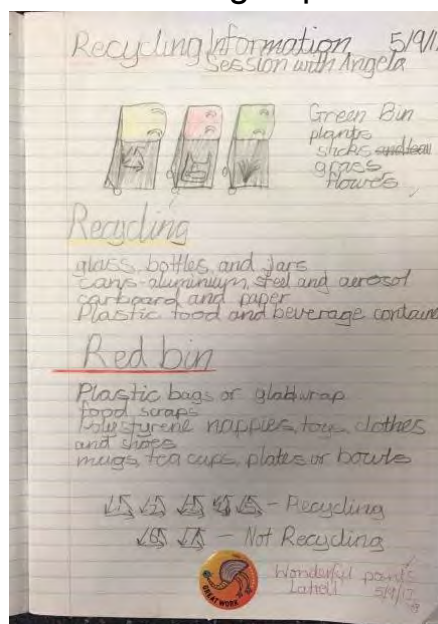 Recycling Information 5/9/1
Session with Angela
Green Bin
plants
sticks and
grass
flowers
Recycling
glass, bottles, and jars
cans-aluminium, steel and aerosol
carboard and paper
Plastic food and beverage containe
Red bin
Plastic bags or gladwrap
food scraps
Polystyrene nappies, toys, clothes
and shoes
mugs, tea cups, plates or bowls
1 2 3 4 5 - Recycling
6 7 - Not Recycling
Wonderful
5/9/17
GREAT WORK